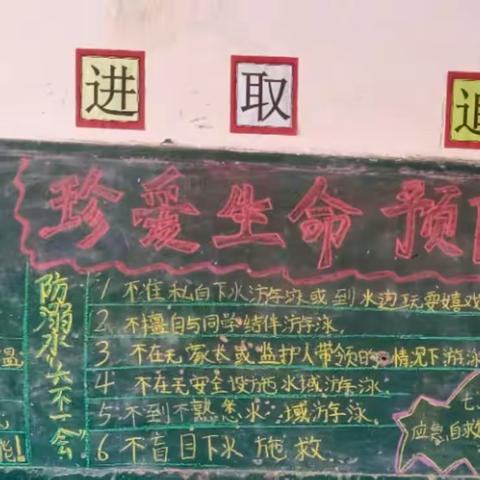 进 取 追
珍爱生命 预防
防溺水六不一会
1 不准私自下水游泳或到水边玩耍嬉戏
2. 不擅自与同学结伴游泳.
3 不在无家长或监护人带领的情况下游泳
4 不在无安全设施水域游泳
5. 不到不熟悉水域游泳.
6 不盲目下水施救.
温
能!
七
应急自救